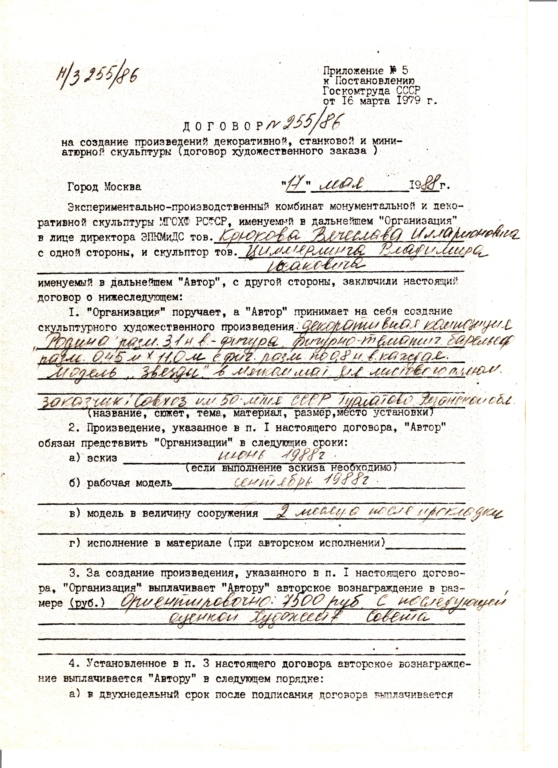 н/з 255/86
Приложение № 5
к Постановлению
Госкомтруда СССР
от 16 марта 1979 г.
ДОГОВОР № 255/86
на создание произведений декоративной, станковой и мини-
атюрной скульптуры (договор художественного заказа )
Город Москва "17" мая 1988 г.
Экспериментально-производственный комбинат монументальной и деко-
ративной скульптуры МГОХФ РСФСР, именуемый в дальнейшем "Организация"
в лице директора ЭПКМиДС тов. Крюкова Вячеслава Илларионовича
с одной стороны, и скульптор тов. Циммерлинга Владимира
Исаковича
именуемый в дальнейшем "Автор", с другой стороны, заключили настоящий
договор о нижеследующем:
I. "Организация" поручает, а "Автор" принимает на себя создание
скульптурного художественного произведения: декоративная композиция
"Родина" разм. 3,1 м в - фигура барельеф
разм. 0,45 м х 11,0 м с фиг. разм по 0,8 м в каждая.
Модель "Звезды" в для
заказчик: Совхоз им 50-летия СССР Турлатово Рязанской обл.
(название, сюжет, тема, материал, размер, место установки)
2. Произведение, указанное в п. I настоящего договора, "Автор"
обязан представить "Организации" в следующие сроки:
а) эскиз июнь 1988г
(если выполнение эскиза необходимо)
б) рабочая модель сентябрь 1988г
в) модель в величину сооружения 2 месяца после прокладки
г) исполнение в материале (при авторском исполнении)
3. За создание произведения, указанного в п. I настоящего догово-
ра, "Организация" выплачивает "Автору" авторское вознаграждение в раз-
мере (руб.) Ориентировочно: 7500 руб. с последующей
оценкой Художеств Совета
4. Установленное в п. 3 настоящего договора авторское вознагражде-
ние выплачивается "Автору" в следующем порядке:
а) в двухнедельный срок после подписания договора выплачивается